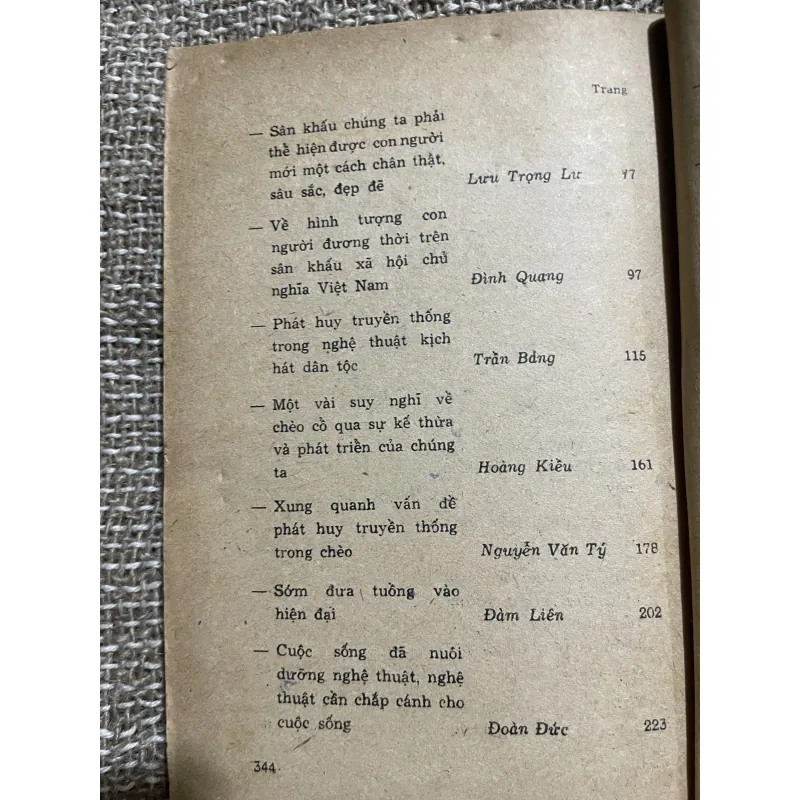 Trang
— Sân khấu chúng ta phải
thể hiện được con người
mới một cách chân thật,
sâu sắc, đẹp đẽ Lưu Trọng Lư 47
— Về hình tượng con
người đương thời trên
sân khấu xã hội chủ
nghĩa Việt Nam Đình Quang 97
— Phát huy truyền thống
trong nghệ thuật kịch
hát dân tộc Trần Bảng 115
— Một vài suy nghĩ về
chèo cổ qua sự kế thừa
và phát triển của chúng
ta Hoàng Kiều 161
— Xung quanh vấn đề
phát huy truyền thống
trong chèo Nguyễn Văn Tý 178
— Sớm đưa tuồng vào
hiện đại Đàm Liên 202
— Cuộc sống đã nuôi
dưỡng nghệ thuật, nghệ
thuật cần chắp cánh cho
cuộc sống Đoàn Đức 223
344